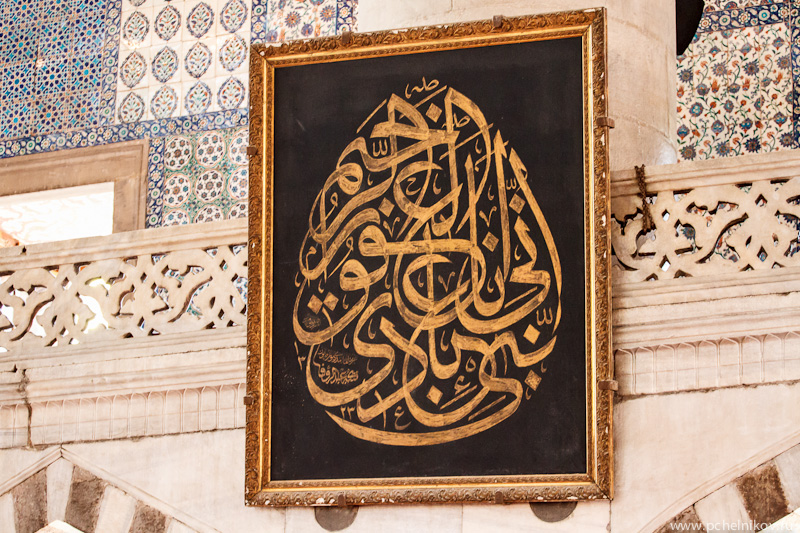 نبئ عبادى انى انا الغفور الرحيم
www.pchelnikov.ru